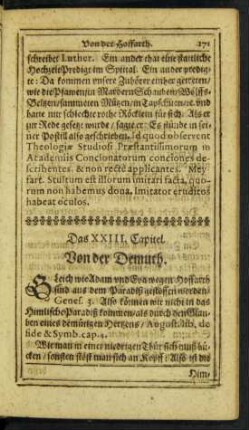 Von der Hoffarth. 171
schreibet Luther. Ein ander that eine stattliche
Hochzeit Predigt im Spittal. Ein ander predig-
te: Da kommen unsere Zuhörer einher getreten/
wie die Pfawen in Mardern Schauben/Wolffs-
Beltzen/sammeten Mützen/ und
hatte nur schlechte rothe Röcklein für sich. Als er
zur Rede gesetzt wurde / sagte er: Es stünde in sei-
ner Postill also geschrieben. Id quod observent
Theologiæ Studiosi Præstantissimorum in
Academiis Concionatorum conciones de-
scribentes, & non rectè applicantes. Mey-
fart. Stultum est illorum imitari facta, quo-
rum non habemus dona. Imitator eruditos
habeat oculos.
Das XXIII. Capitel.
Von der Demuth.
Gleich wie Adam und Eva wegen Hoffarth
sind aus dem Paradiß gestossen worden/
Genes. 3. Also können wir nicht in das
Himlische Paradiß kommen/als durch den Glau-
ben eines demütigen Hertzens/ Augustinus, de
fide & Symb. cap. 4.
Wie man in einer niedrigen Thür sich muß bü-
cken / sonsten stöst man sich an Kopff: Also ist die
Him-